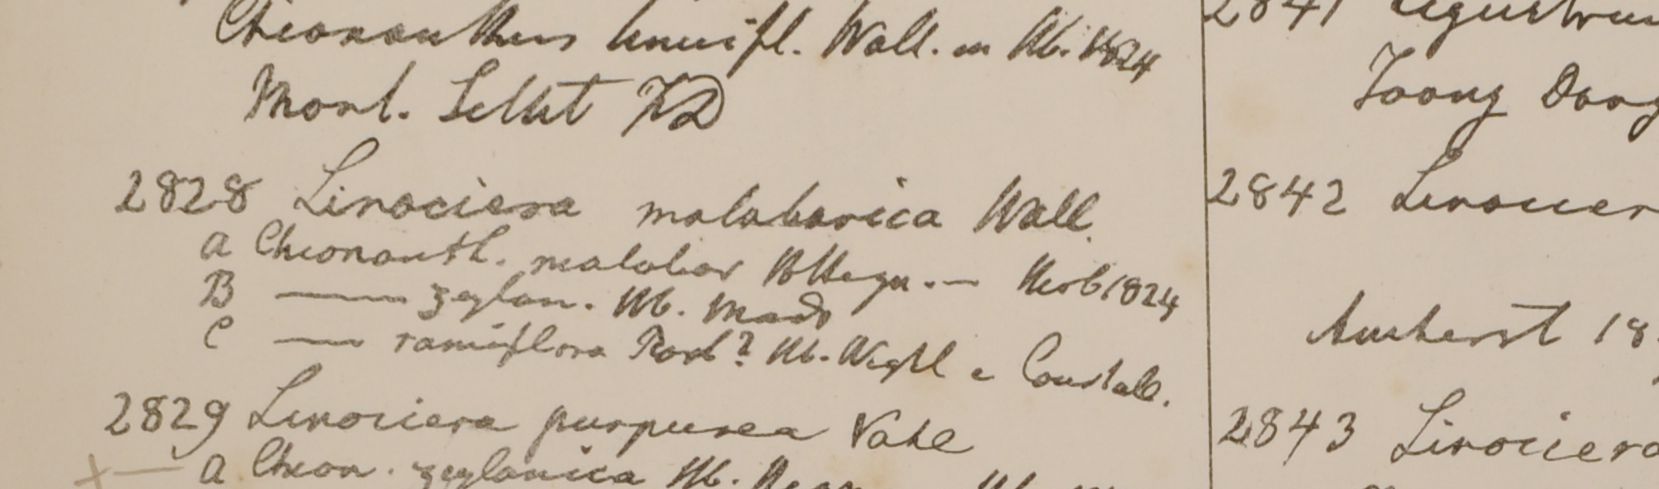 Chionanthus tenuifl. Wall. in Hb. 1824
Mont. Sillet FD
2828 Linociera malabarica Wall.
a Chionanth. malabar Hb Heyn. — Herb 1824
B —— zeylan. Hb. Madr
C —— ramiflora Roxb? Hb. Wight e Courtall.
2829 Linociera purpurea Vahl
+ — a Chion. zeylanica Hb.
2841 Ligustrum
Toong Dong
2842 Linocier
Amherst 18
2843 Linociera